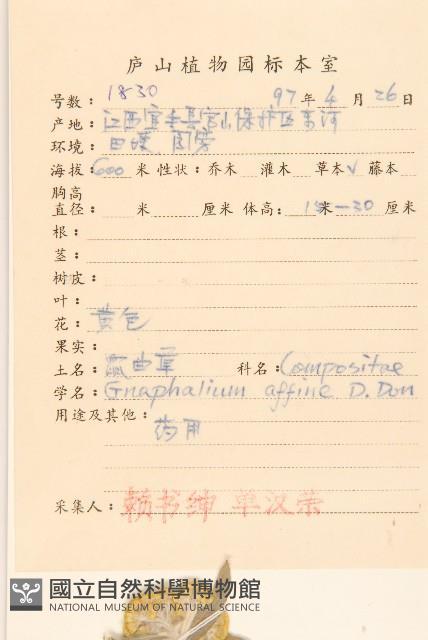 庐山植物园标本室
号数：1830 97年4月26日
产地：江西宜丰县官山保护区东河
环境：田埂 图旁
海拔：600米 性状：乔木 灌木 草本√ 藤本
胸高
直径： 米 厘米 体高：15米—30厘米
根：
茎：
树皮：
叶：
花：黄色
果实：
土名：鼠曲草 科名：Compositae
学名：Gnaphalium affine D. Don
用途及其他：
药用
采集人：赖书绅 单汉荣
國立自然科學博物館
NATIONAL MUSEUM OF NATURAL SCIENCE